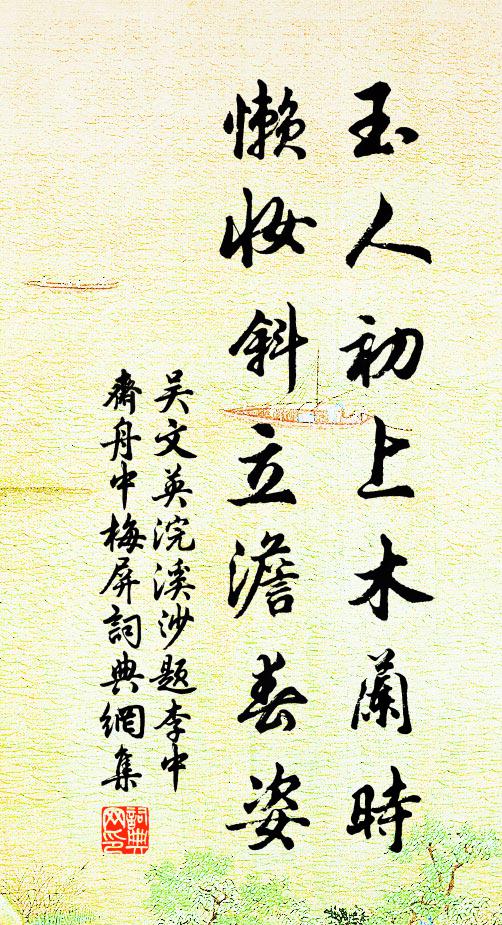 玉人初上木蘭時
懶妝斜立澹春姿
吴文英浣溪沙題李中
齋舟中梅屏詞典網集
詞典网印